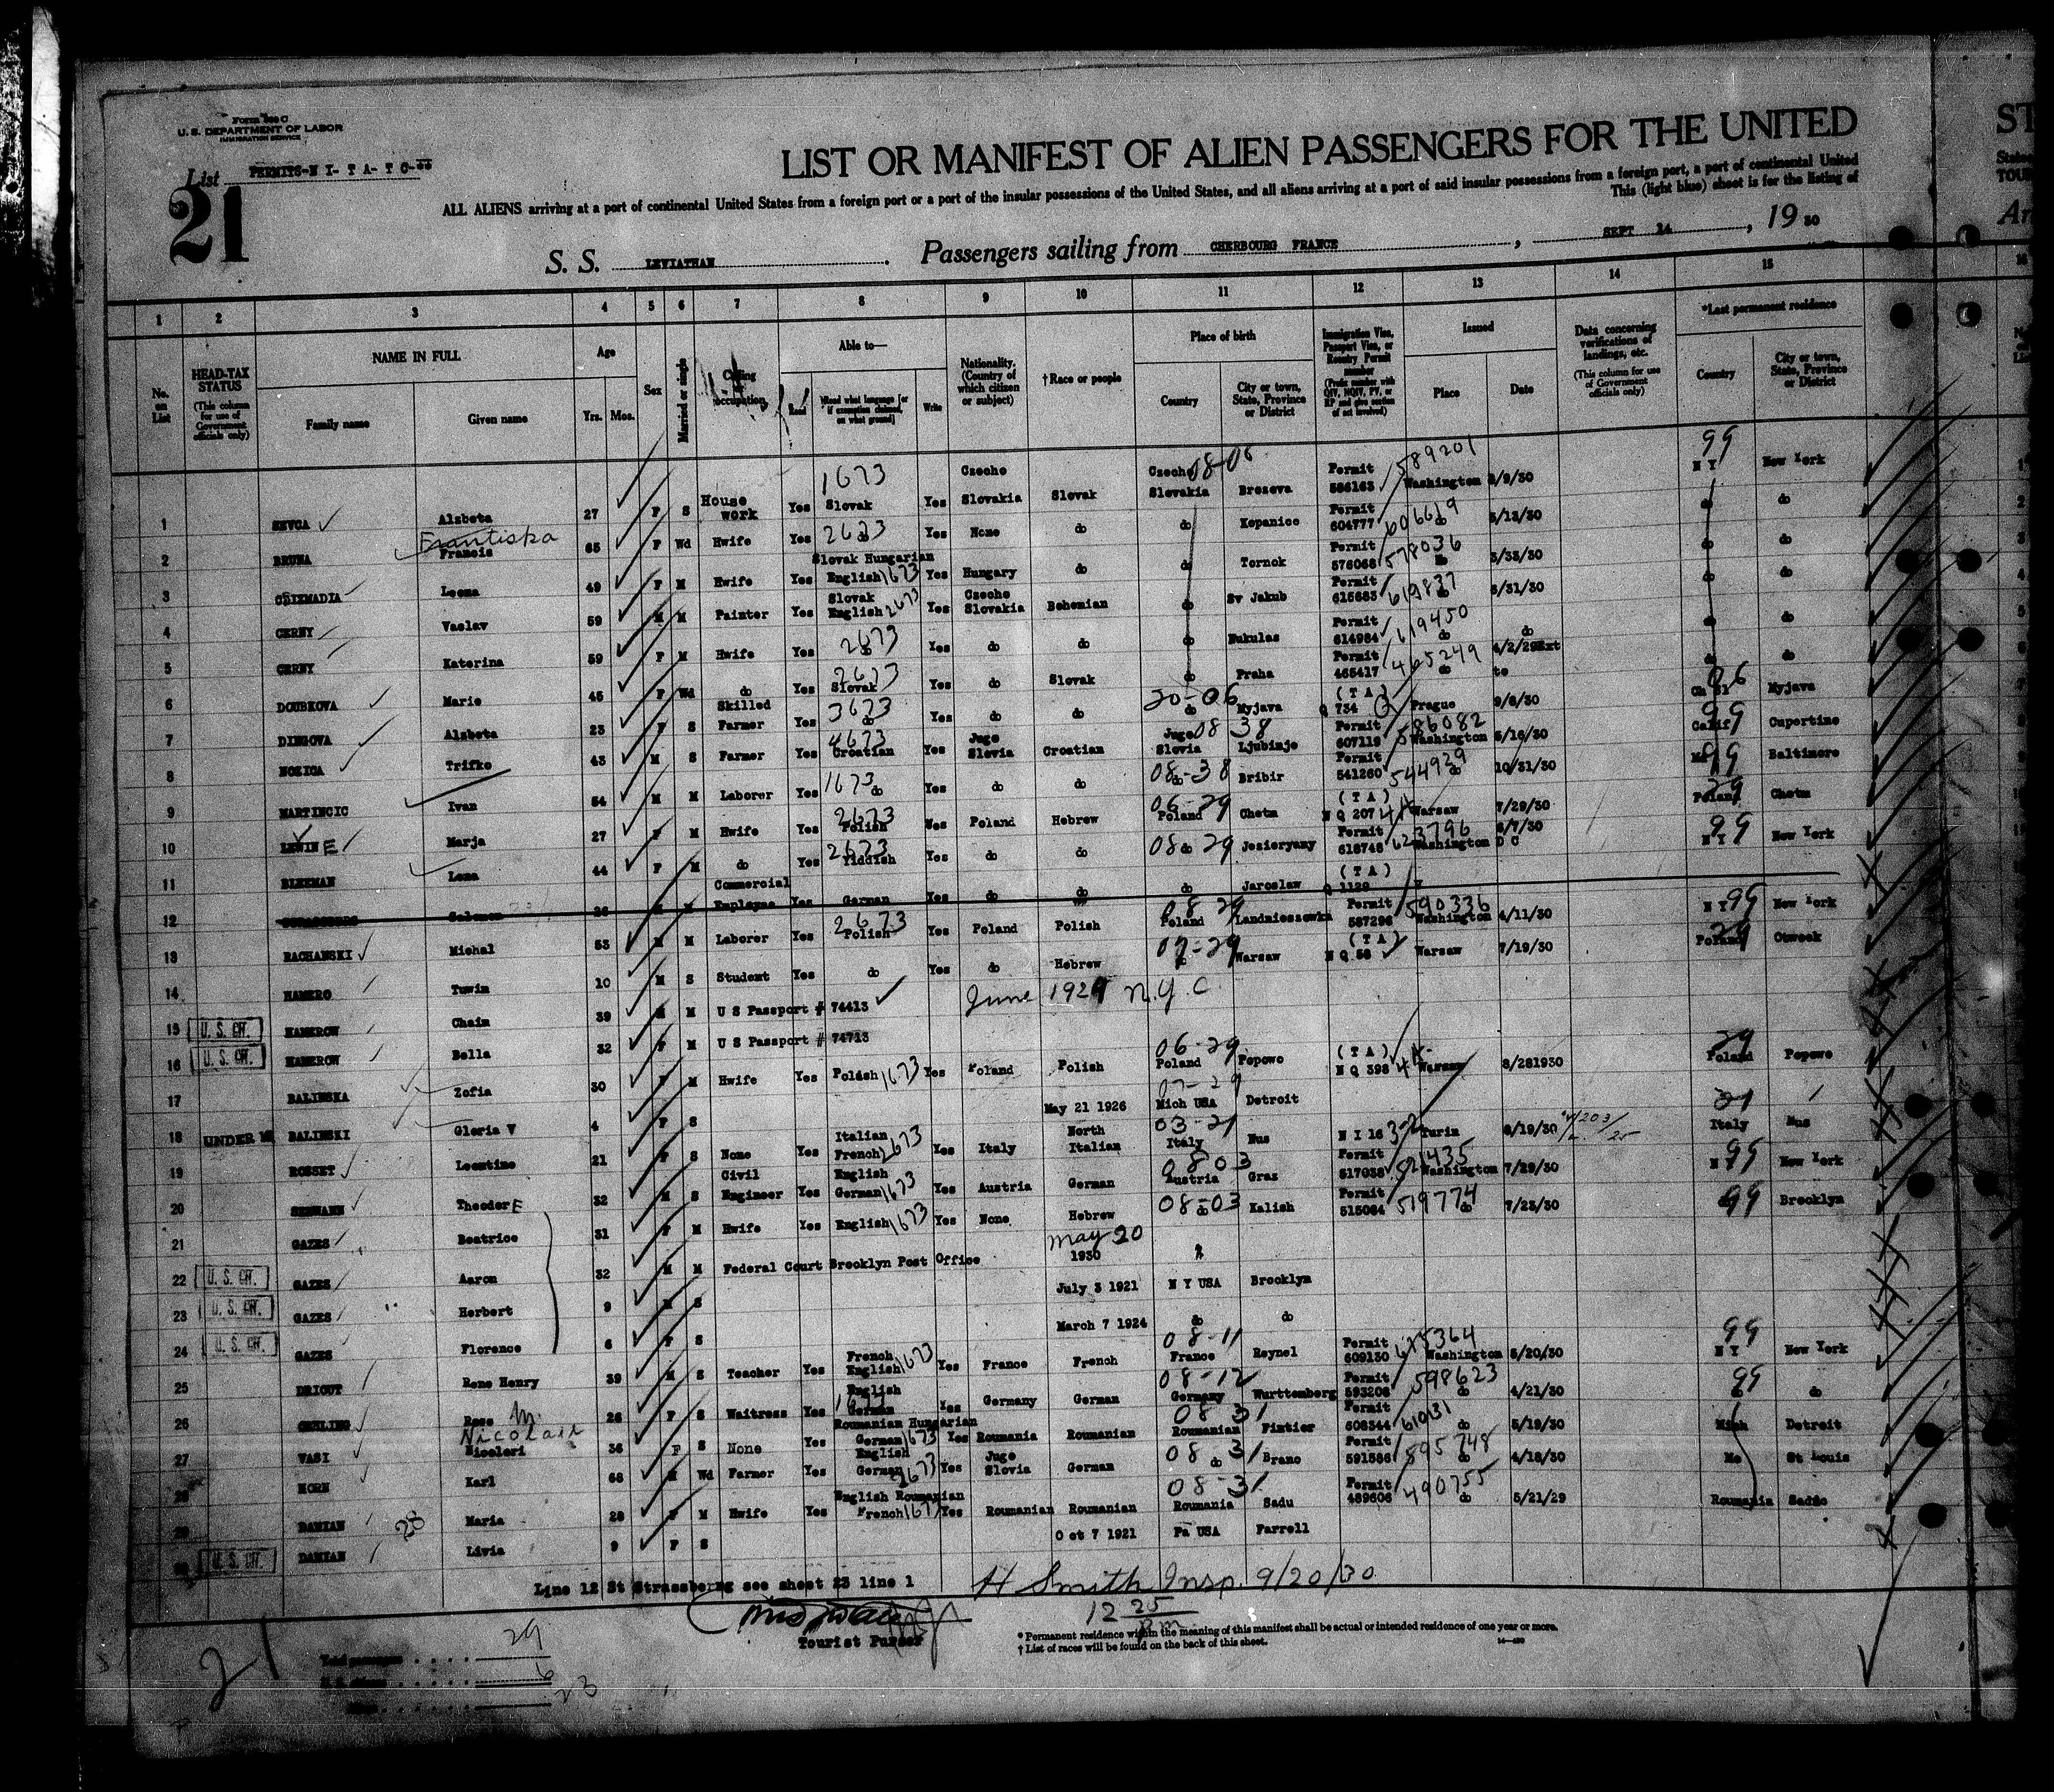 Form 500 C
U. S. DEPARTMENT OF LABOR
IMMIGRATION SERVICE
List PERMITS-N I- T A- T C-
21
LIST OR MANIFEST OF ALIEN PASSENGERS FOR THE UNITED
ALL ALIENS arriving at a port of continental United States from a foreign port or a part of the insular possessions of the United States, and all aliens arriving at a port of said insular possessions from a foreign port, a part of continental United
This (light blue) sheet is for the listing of
S. S. LEVIATHAN Passengers sailing from CHERBOURG FRANCE , SEPT 14 , 19 30
1 2 3 4 5 6 7 8 9 10 11 12 13 14 15
No. on List HEAD-TAX STATUS (This column for use of Government officials only) NAME IN FULL Family name Given name Age Yrs. Mos. Sex Married or single Calling or occupation Able to— Read Read what language [or if exemption claimed, on what ground] Write Nationality. (Country of which citizen or subject) †Race or people Place of birth Country City or town, State, Province or District Immigration Visa, Passport Visa, or Reentry Permit number (Prefix number with QIV, NQIV, PV, or RP and give section of act involved) Issued Place Date Data concerning verifications of landings, etc. (This column for use of Government officials only) *Last permanent residence Country City or town, State, Province or District
1 Alzbeta 27 F S House work Yes Slovak 1673 Yes Czecho Slovakia Slovak Czecho Slovakia 08-06 Brezova Permit 586163 589201 Washington 2/9/30 N Y 99 New York
2 BRUNA Frantiska Francis 65 F Wd Hwife Yes do 2673 Yes None do do Kopanice Permit 604777 606619 do 5/13/30 do do
3 CSIZMADIA Leona 49 F M Hwife Yes Slovak Hungarian English 1673 Yes Hungary do do Tornok Permit 576068 578036 do do
4 CERNY Vaclav 59 M M Painter Yes Slovak English 2673 Yes Czecho Slovakia Bohemian do Sv Jakub Permit 615683 619837 do 5/31/30 do do
5 CERNY Katerina 59 F M Hwife Yes do 2673 Yes do do do Permit 614984 619450 do do do do
6 DOUBKOVA Marie 45 F Wd do Yes Slovak 2673 Yes do Slovak do Praha Permit 465417 465249 do 4/2/29Ext to do do
7 DINGOVA Alzbeta 23 F S Skilled Farmer Yes do 3673 Yes do do do 20-06 Myjava (T A) Q 734 Prague 9/6/30 06 Myjava
8 NOZICA Trifko 43 M S Farmer Yes Croatian 4673 Yes Jugo Slovia Croatian Jugo Slovia 08 38 Ljubinje Permit 607119 586082 Washington 5/16/30 Calif 99 Cupertino
9 MARTINCIC Ivan 54 M M Laborer Yes do 1673 Yes do do do 08-38 Bribir Permit 541260 544929 do 10/31/30 99 Baltimore
10 LEWINE Marja 27 F M Hwife Yes Polish 2673 Yes Poland Hebrew Poland 06-29 Chelm (T A) N Q 207 Warsaw 7/29/30 Poland 29 Chelm
11 Lena 44 F M do Yes Yiddish 2673 Yes do do do 08 29 Jezierzany Permit 618748 623796 Washington D C N Y 99 New York
12 Salomon 26 M Commercial Employee Yes German Yes do do do Jaroslaw (T A) Q 1129
13 RACHANSKI Michal 53 M M Laborer Yes Polish 2673 Yes Poland Polish Poland 08 29 Permit 587296 590336 Washington 4/11/30 N Y 99 New York
14 HAMERO Tuwia 10 M S Student Yes do Yes do Hebrew do 07-29 Warsaw (T A) N Q 56 Warsaw 7/19/30 Poland 29 Otwock
15 U. S. CIT. HAMEROW Chaim 39 M M U S Passport # 74413 June 1929 N.Y.C.
16 U. S. CIT. HAMEROW Bella 32 F M U S Passport # 74713
17 BALINSKA Zofia 30 F M Hwife Yes Polish 1673 Yes Poland Polish Poland 06-29 Popowo (T A) N Q 398 Warsaw 8/281930 Poland 29 Popowo
18 UNDER 16 BALINSKI Gloria V 4 F S May 21 1926 Mich USA 07-29 Detroit
19 ROSSET Leontine 21 F S None Yes Italian French 2673 Yes Italy North Italian Italy 03-21 Nus N I 16 Turin 8/19/30 Italy 21 Nus
20 Theodor E 32 M S Civil Engineer Yes English German 1673 Yes Austria German Austria 0803 Graz Permit 517038 521435 Washington 7/29/30 N Y 99 New York
21 GAZES Beatrice 31 F M Hwife Yes English 1673 Yes None Hebrew do 08-03 Kalish Permit 515084 519774 do 7/23/30 99 Brooklyn
22 U. S. CIT. GAZES Aaron 32 M M Federal Court Brooklyn Post Office May 20 1930
23 U. S. CIT. GAZES Herbert 9 M S July 3 1921 N Y USA Brooklyn
24 U. S. CIT. GAZES Florence 6 F S March 7 1924 do do
25 DRIOUT Rene Henry 39 M S Teacher Yes French English 1673 Yes France French France 08-11 Reynel Permit 609130 615364 Washington 5/20/30 N Y 99 New York
26 Rose M. 26 F S Waitress Yes English German 1673 Yes Germany German Germany 08-12 Wurttemberg Permit 593208 598623 do 4/21/30 99 do
27 VASI Nicolaii Nicolari 36 F S None Yes Roumanian Hungarian German 1673 Yes Roumania Roumanian Roumanian 08 31 Pintier Permit 608344 do 5/19/30 Mich Detroit
28 HORN Karl 68 M Wd Farmer Yes English German 2673 Yes Jugo Slovia German do 08 31 Brano Permit 591586 595748 do 4/18/30 Mo St Louis
29 DAMIAN 28 Maria 28 F M Hwife Yes English Roumanian French 1673 Yes Roumanian Roumanian Roumania 08-31 Sadu Permit 489606 490755 do 5/21/29 Roumania
30 U. S. CIT. DAMIAN Livia 9 F S Oct 7 1921 Pa USA Farrell
Line 12 St Strassberg see sheet 23 line 1
H Smith Insp. 9/20/30
12 25 pm
Tourist Purser
* Permanent residence within the meaning of this manifest shall be actual or intended residence of one year or more.
† List of races will be found on the back of this sheet.
21
Total passengers 29
6
23